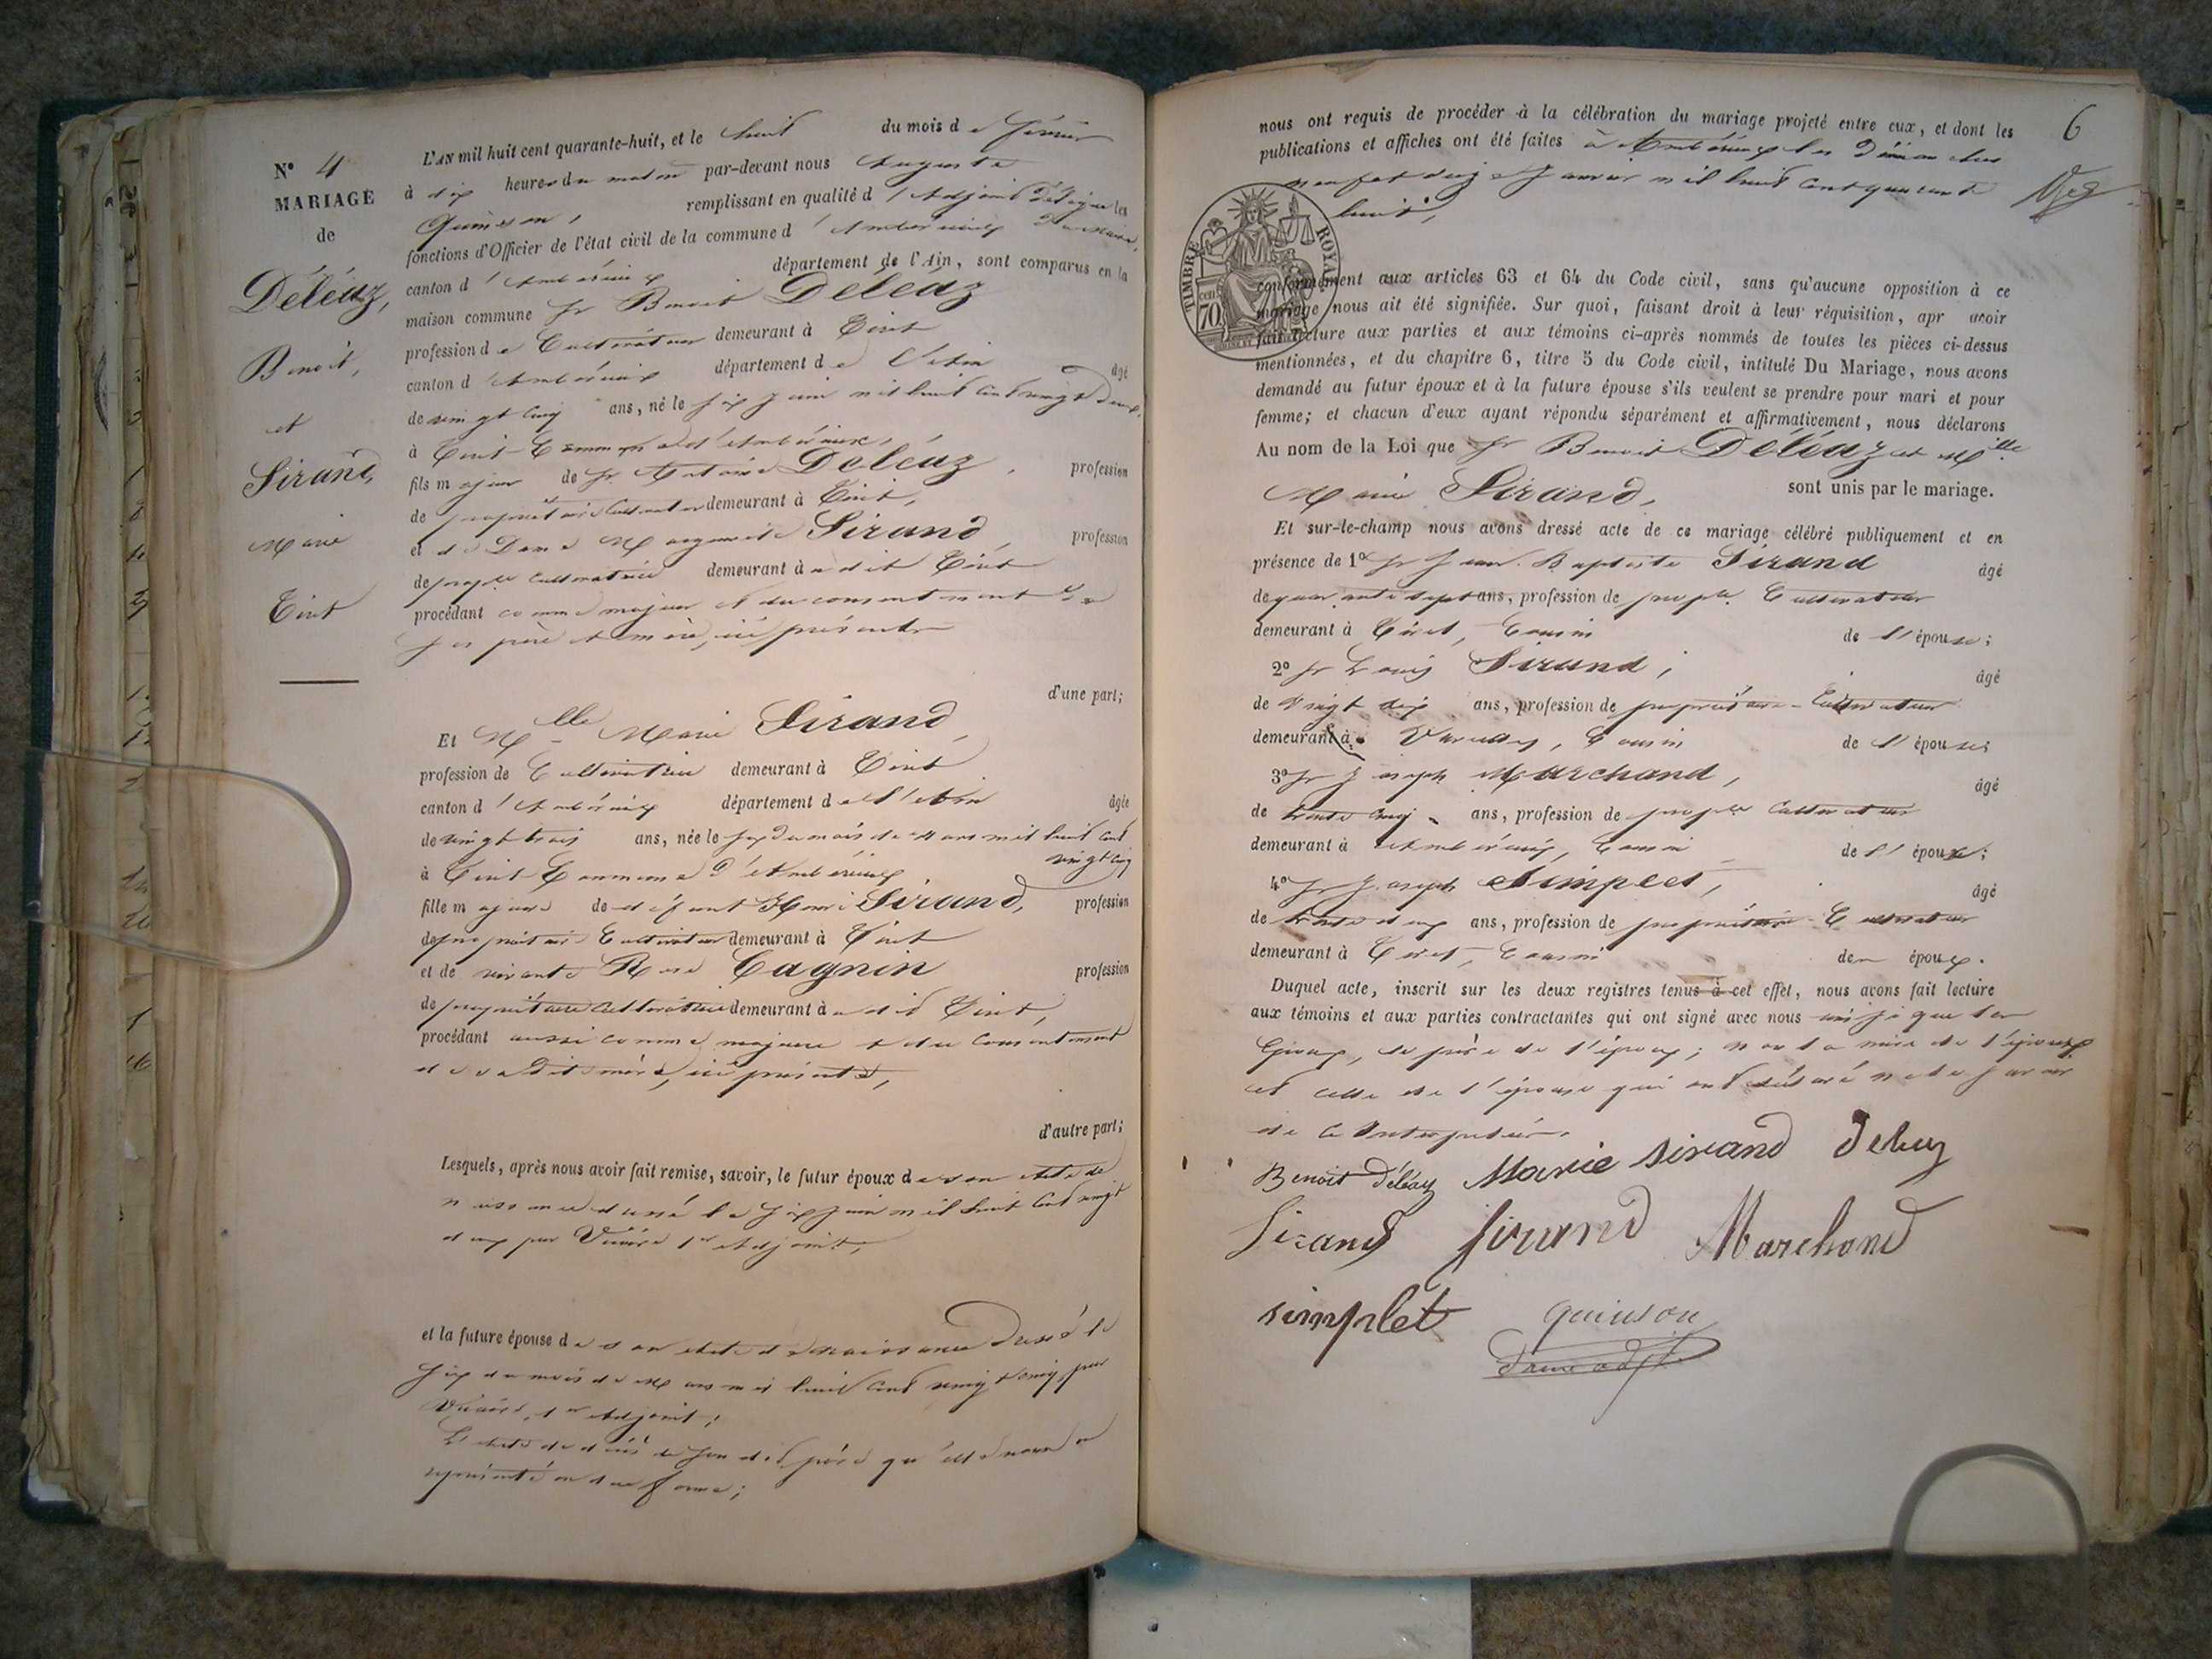 N° 4
MARIAGE
de
Déléaz,
Benoit,
et
Sirand,
Marie
Tiret
L'AN mil huit cent quarante-huit, et le huit du mois de février
à dix heures du matin par-devant nous Auguste
Quinson, remplissant en qualité d'Adjoint Délégué les
fonctions d'Officier de l'état civil de la commune d'Ambérieux Du maire,
canton d'Ambérieux département de l'Ain, sont comparus en la
maison commune Sr Benoit Déléaz
profession de Cultivateur demeurant à Tiret
canton d'Ambérieux département de l'Ain âgé
de vingt cinq ans, né le six juin mil huit cent vingt deux,
à Tiret Commune d'Ambérieux,
fils majeur de Sr Antoine Déléaz, profession
de propriétaire Cultivateur demeurant à Tiret,
et de Dame Marguerite Sirand, profession
de propre Cultivatrice demeurant à u dit Tiret
procédant comme majeur et du consentement de
ses père et mère, ici présents
d'une part;
Et Mlle Marie Sirand,
profession de Cultivatrice demeurant à Tiret
canton d'Ambérieux département de l'Ain âgée
de vingt trois ans, née le six du mois de mars mil huit cent
vingt cinq
à Tiret Commune d'Ambérieux
fille majeure de défunt Sirand, profession
de propriétaire Cultivateur demeurant à Tiret
et de vivante Rose Cagnin profession
de propriétaire Cultivatrice demeurant à u dit Tiret,
procédant aussi comme majeure et du consentement
de sa dite mère, ici présente,
d'autre part;
Lesquels, après nous avoir fait remise, savoir, le futur époux de son acte de
naissance dressé le six juin mil huit cent vingt
deux par 1er Adjoint,
et la future épouse de son acte de naissance dressé le
six du mois de mars mil huit cent vingt cinq par
1er Adjoint;
L'acte de décès de son dit père qu'elle nous a
représenté en due forme;
6
nous ont requis de procéder à la célébration du mariage projeté entre eux, et dont les
publications et affiches ont été faites à Ambérieux les Dimanches
neuf et seize Janvier mil huit cent quarante
huit,
TIMBRE ROYAL
70 cen
conformément aux articles 63 et 64 du Code civil, sans qu'aucune opposition à ce
mariage nous ait été signifiée. Sur quoi, faisant droit à leur réquisition, apr avoir
fait lecture aux parties et aux témoins ci-après nommés de toutes les pièces ci-dessus
mentionnées, et du chapitre 6, titre 5 du Code civil, intitulé Du Mariage, nous avons
demandé au futur époux et à la future épouse s'ils veulent se prendre pour mari et pour
femme; et chacun d'eux ayant répondu séparément et affirmativement, nous déclarons
Au nom de la Loi que Sr Benoit Déléaz et Mlle
Marie Sirand, sont unis par le mariage.
Et sur-le-champ nous avons dressé acte de ce mariage célébré publiquement et en
présence de 1° Sr Jean Baptiste Sirand âgé
de quarante sept ans, profession de propre Cultivateur
demeurant à Tiret, Cousin de l'épouse;
2° Sr Louis Sirand, âgé
de vingt six ans, profession de propriétaire-Cultivateur
demeurant à Vareilles, Cousin de l'épouse;
3° Sr Joseph Marchand, âgé
de trente cinq ans, profession de propre Cultivateur
demeurant à Ambérieux, Cousin de l'épouse;
4° Sr Joseph Simplet, âgé
de trente deux ans, profession de propriétaire-Cultivateur
demeurant à Tiret, Cousin de époux.
Duquel acte, inscrit sur les deux registres tenus à cet effet, nous avons fait lecture
aux témoins et aux parties contractantes qui ont signé avec nous ainsi que les
époux, le père de l'époux; non la mère de l'époux
et celle de l'épouse qui ont déclaré ne le savoir
de ce interpellées.
Benoit Déléaz Marie Sirand Deleaz
Sirand Sirand Marchand
simplet Quinson